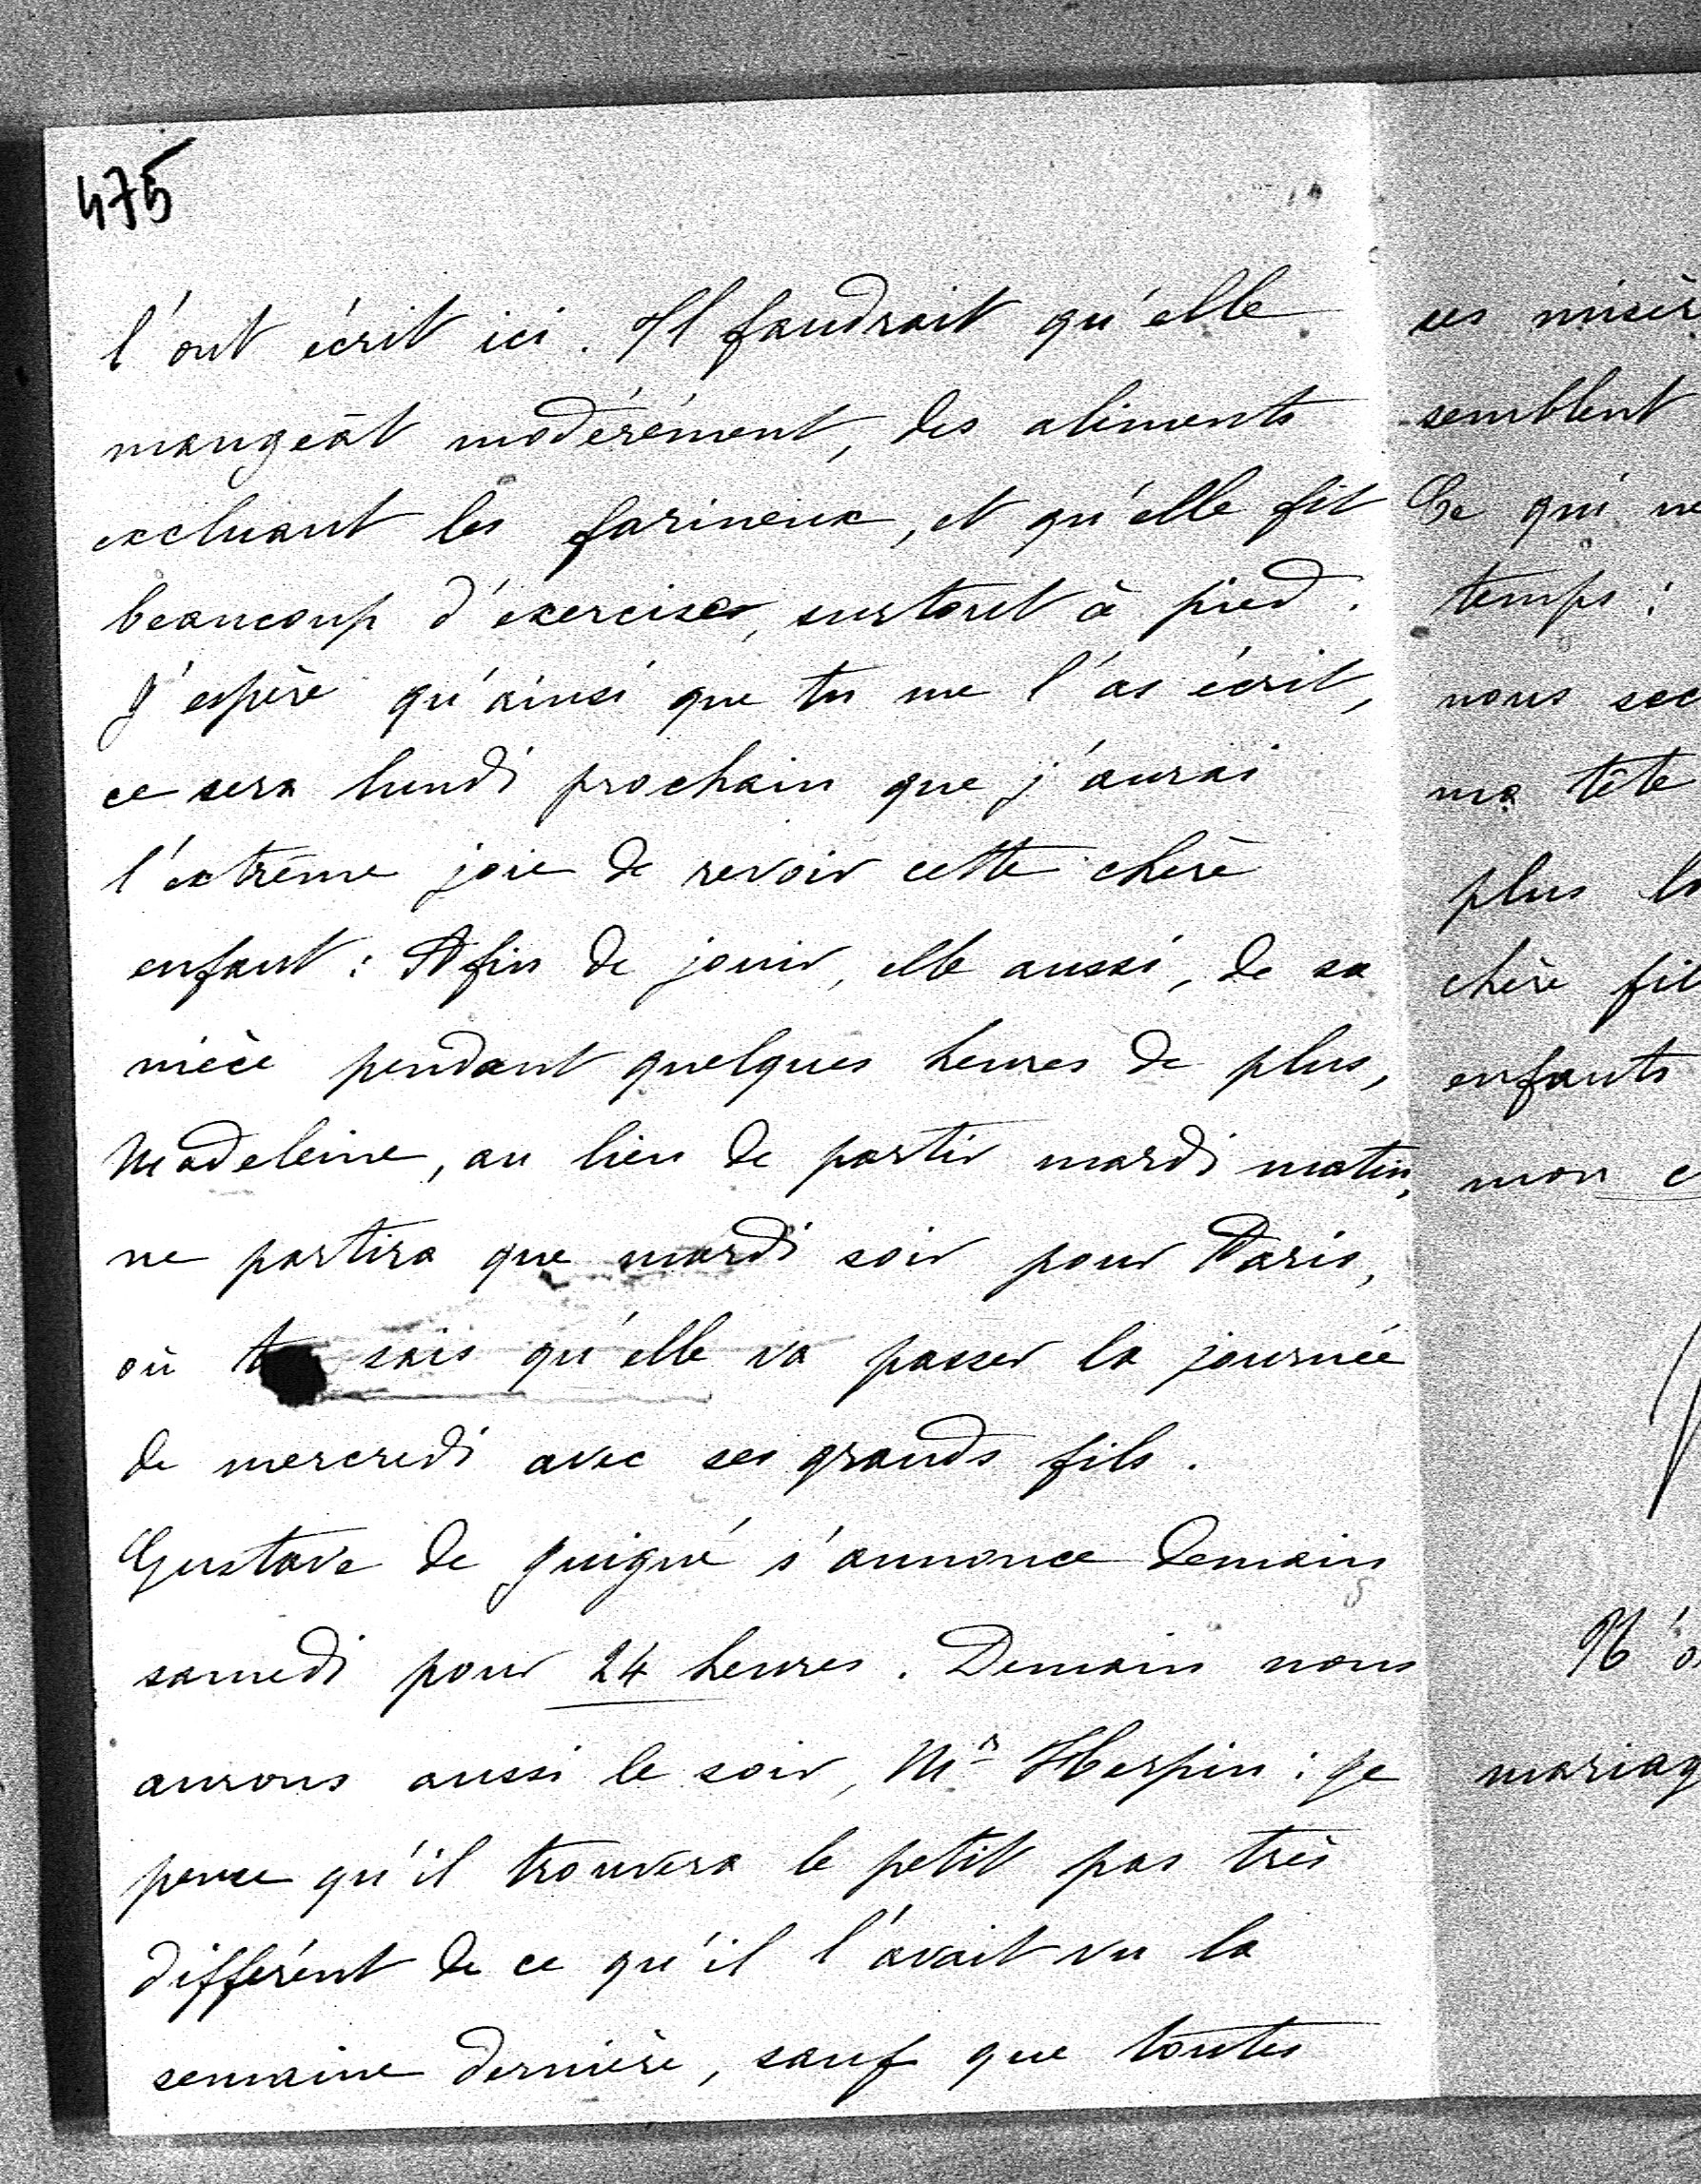 475
l'ont écrit ici. Il faudrait qu'elle
mangeât modérément, des aliments
excluant les farineux, et qu'elle fit
beaucoup d'exercices, surtout à pied.
J'espère qu'ainsi que tu me l'as écrit,
ce sera lundi prochain que j'aurai
l'extrême joie de revoir cette chère
enfant : Afin de jouir, elle aussi, de sa
nièce pendant quelques heures de plus,
Madeleine, au lieu de partir mardi matin,
ne partira que mardi soir pour Paris,
où tu sais qu'elle va passer la journée
de mercredi avec ses grands fils.
Gustave de Guigné s'annonce demain
samedi pour 24 heures. Demain nous
aurons aussi le soir, Mr Herpin : je
pense qu'il trouvera le petit pas très
différent de ce qu'il l'avait vu la
semaine dernière, sauf que toutes
ces misèr
semblent
Ce qui ne
temps :
nous
ma tête
plus
chère fil
enfants
mon c
mariag